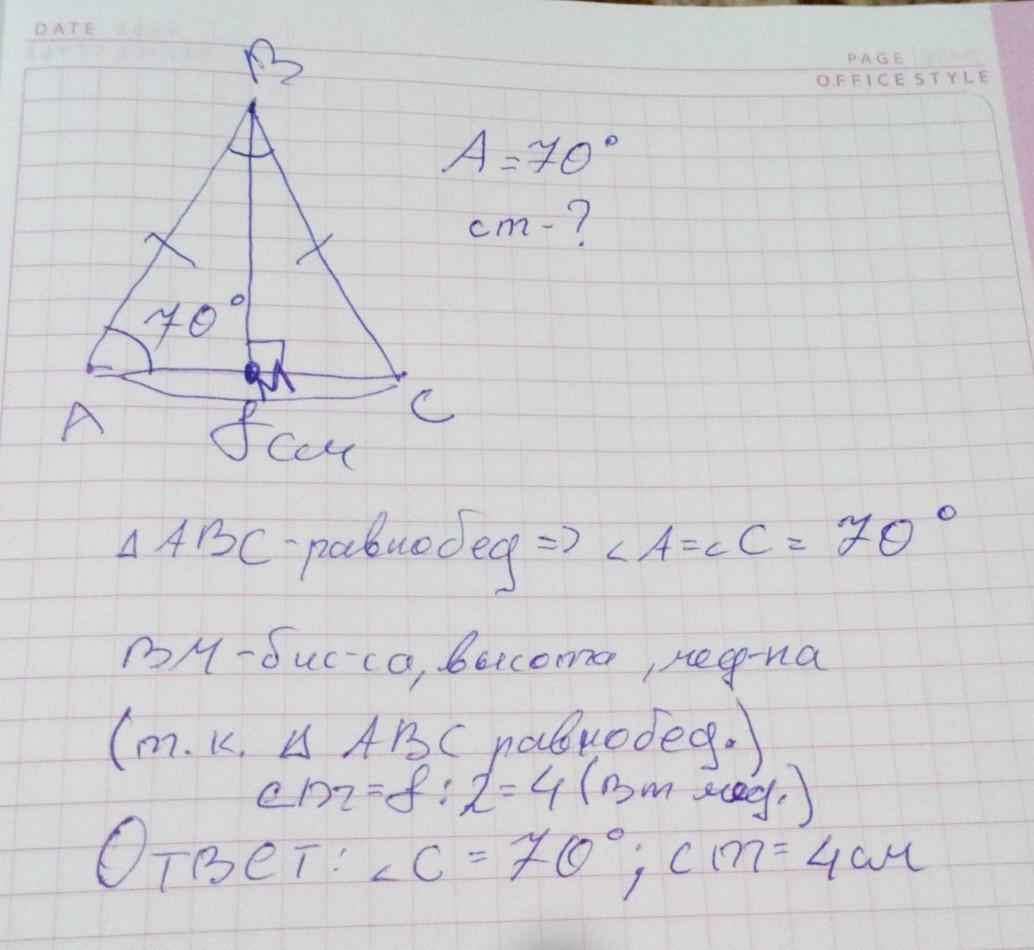 DATE
PAGE
OFFICE STYLE
B
A = 70°
cm - ?
70°
M
A
C
8 см
△ ABC - равнобед => ∠A = ∠C = 70°
BM - бис-са, высота, мед-на
(т.к. △ ABC равнобед.)
cm = 8 : 2 = 4 (Bm мед.)
Ответ: ∠C = 70°; cm = 4 см